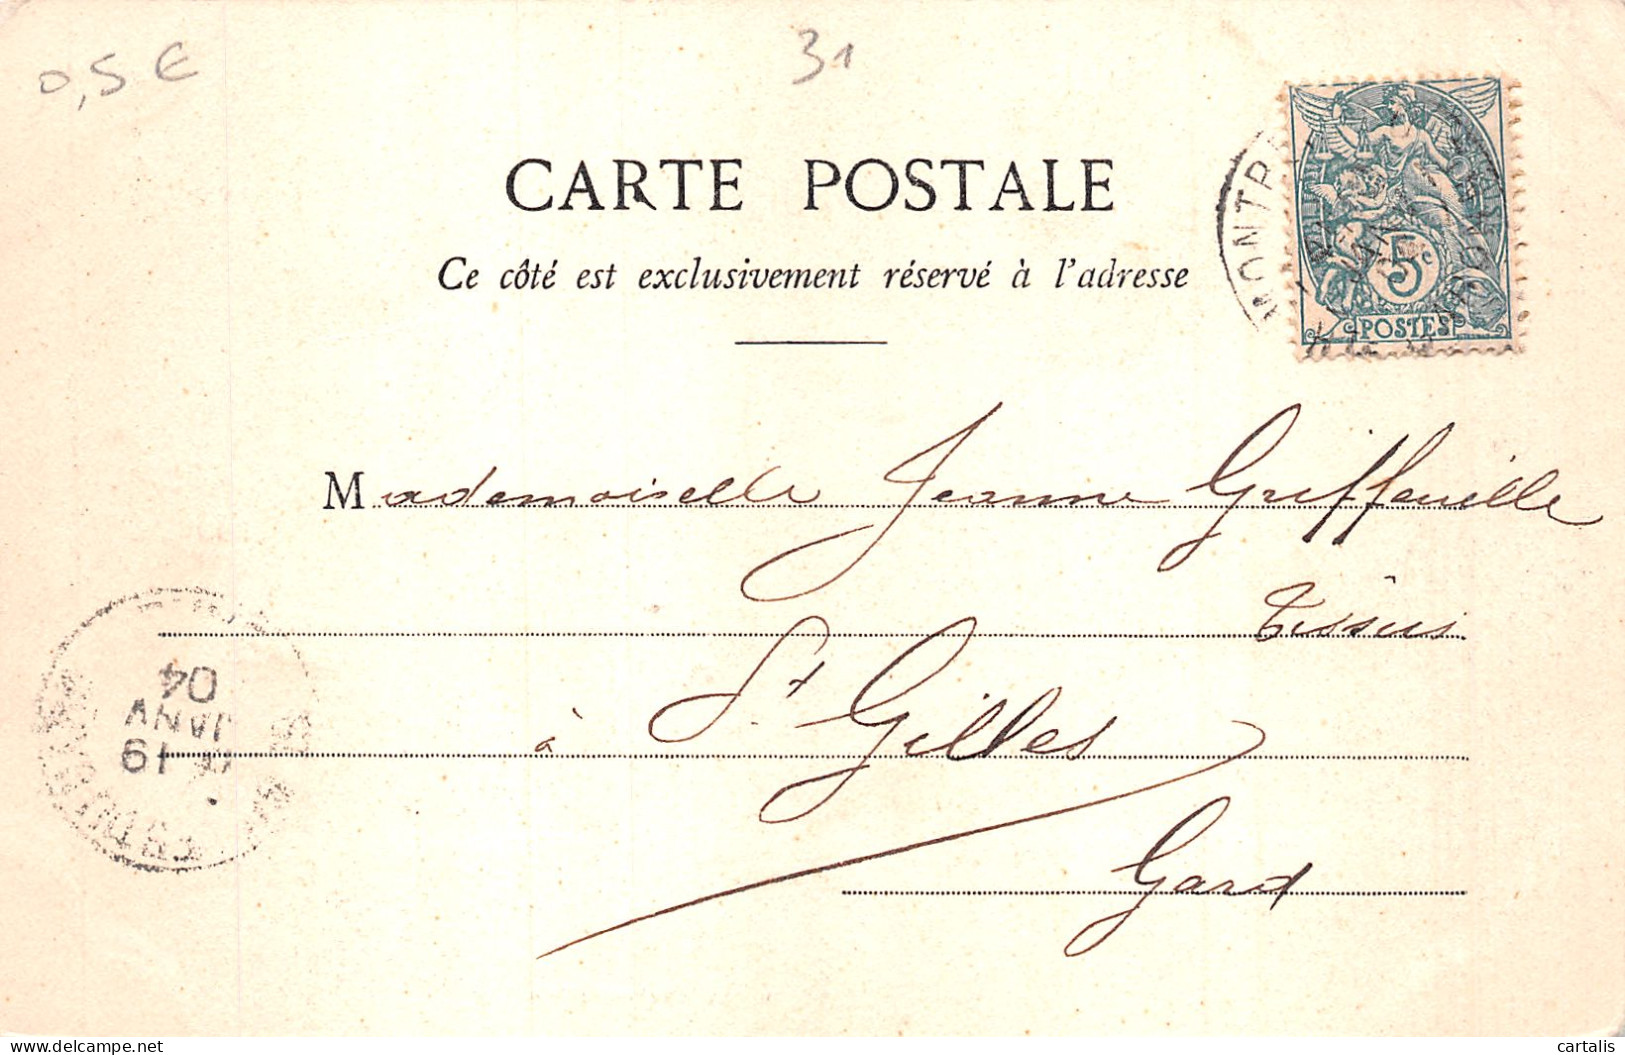 0,5 €
31
CARTE POSTALE
Ce côté est exclusivement réservé à l'adresse
5c
POSTES
Mademoiselle Jeanne Griffeuille
Tissus
à St Gilles
Gard
19
JANV
04
delcampe.net
cartalis